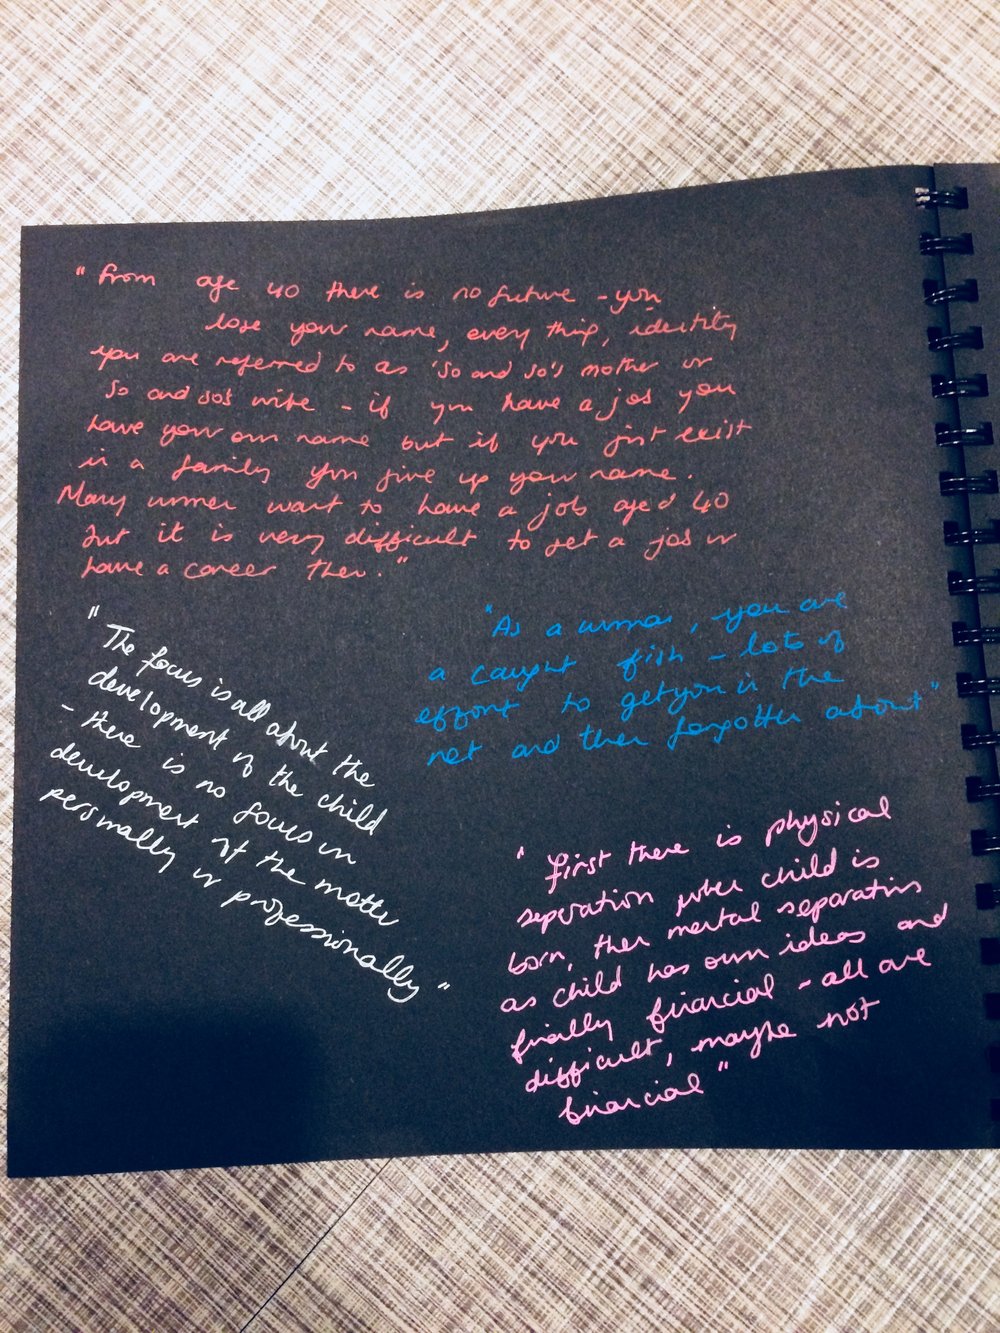 "From age 40 there is no future - you
lose your name, every thing, identity
you are referred to as 'so and so's mother or
so and so's wife - if you have a job you
have your own name but if you just exist
in a family you give up your name.
Many women want to have a job aged 40
but it is very difficult to get a job or
have a career then."
"The focus is all about the
development of the child
- there is no focus on
development of the mother
personally or professionally"
"As a woman, you are
a caught fish - lots of
effort to get you in the
net and then forgotten about"
"First there is physical
seperation when child is
born, then mental separation
as child has own ideas and
finally financial - all are
difficult, maybe not
financial"